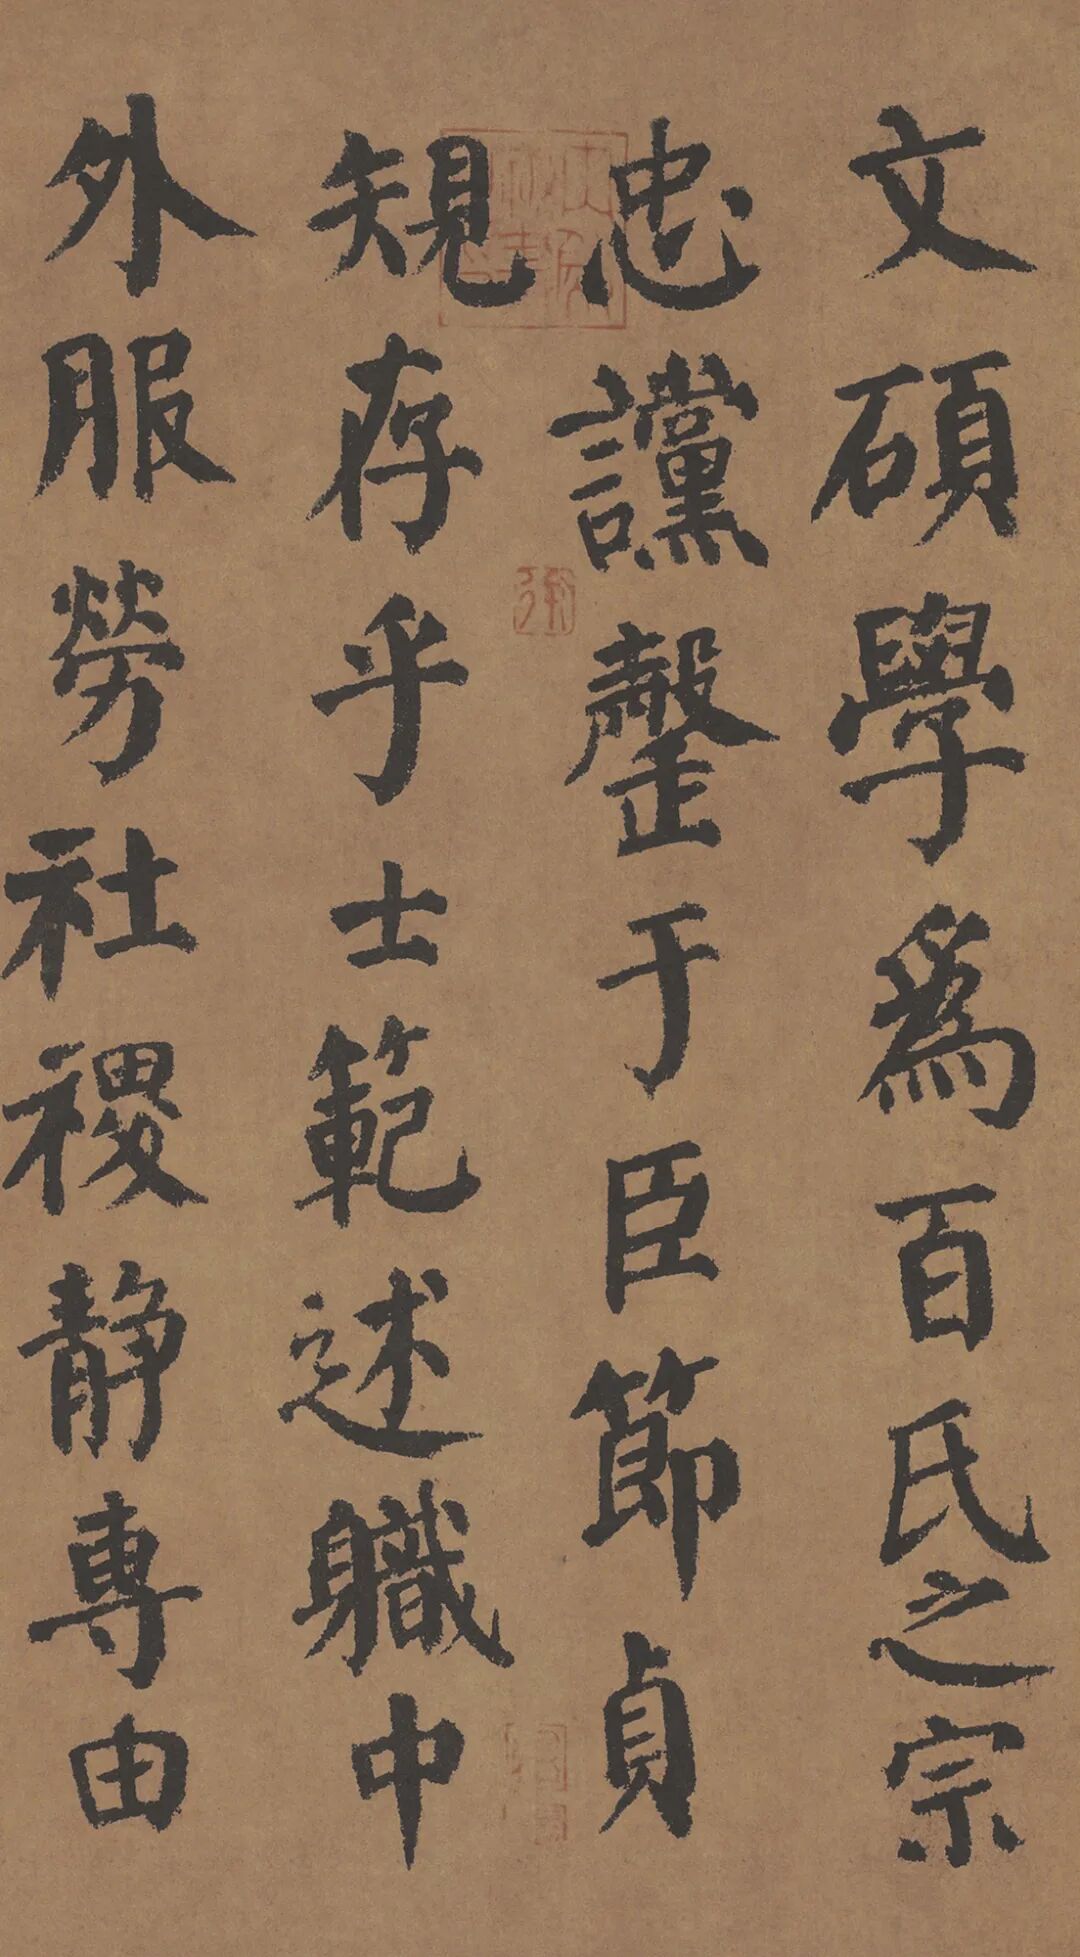 文碩學為百氏之宗
忠讜罄于臣節貞
規存乎士範述職中
外服勞社稷靜專由